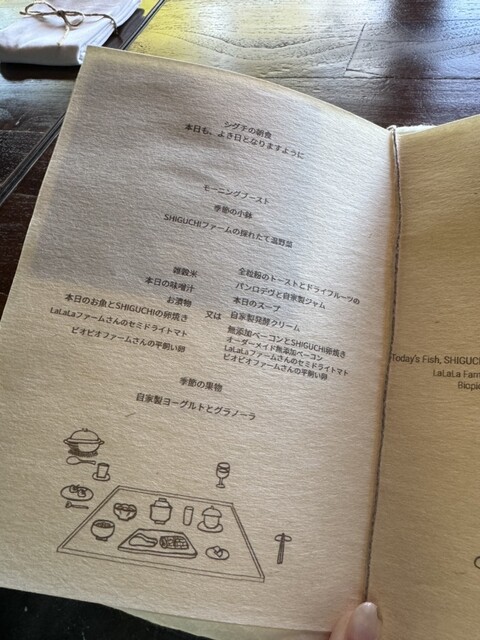 シグチの朝食
本日も、よき日となりますように
モーニングブースト
季節の小鉢
SHIGUCHIファームの採れたて温野菜
雑穀米
本日の味噌汁
お漬物
本日のお魚とSHIGUCHIの卵焼き
LaLaLaファームさんのセミドライトマト
ピオピオファームさんの平飼い卵
又は
全粒粉のトーストとドライフルーツの
パンロデヴと自家製ジャム
本日のスープ
自家製発酵クリーム
無添加ベーコンとSHIGUCHI卵焼き
オーダーメイド無添加ベーコン
LaLaLaファームさんのセミドライトマト
ピオピオファームさんの平飼い卵
季節の果物
自家製ヨーグルトとグラノーラ
Today's Fish, SHIGUC
LaLaLa Farm
Biopio